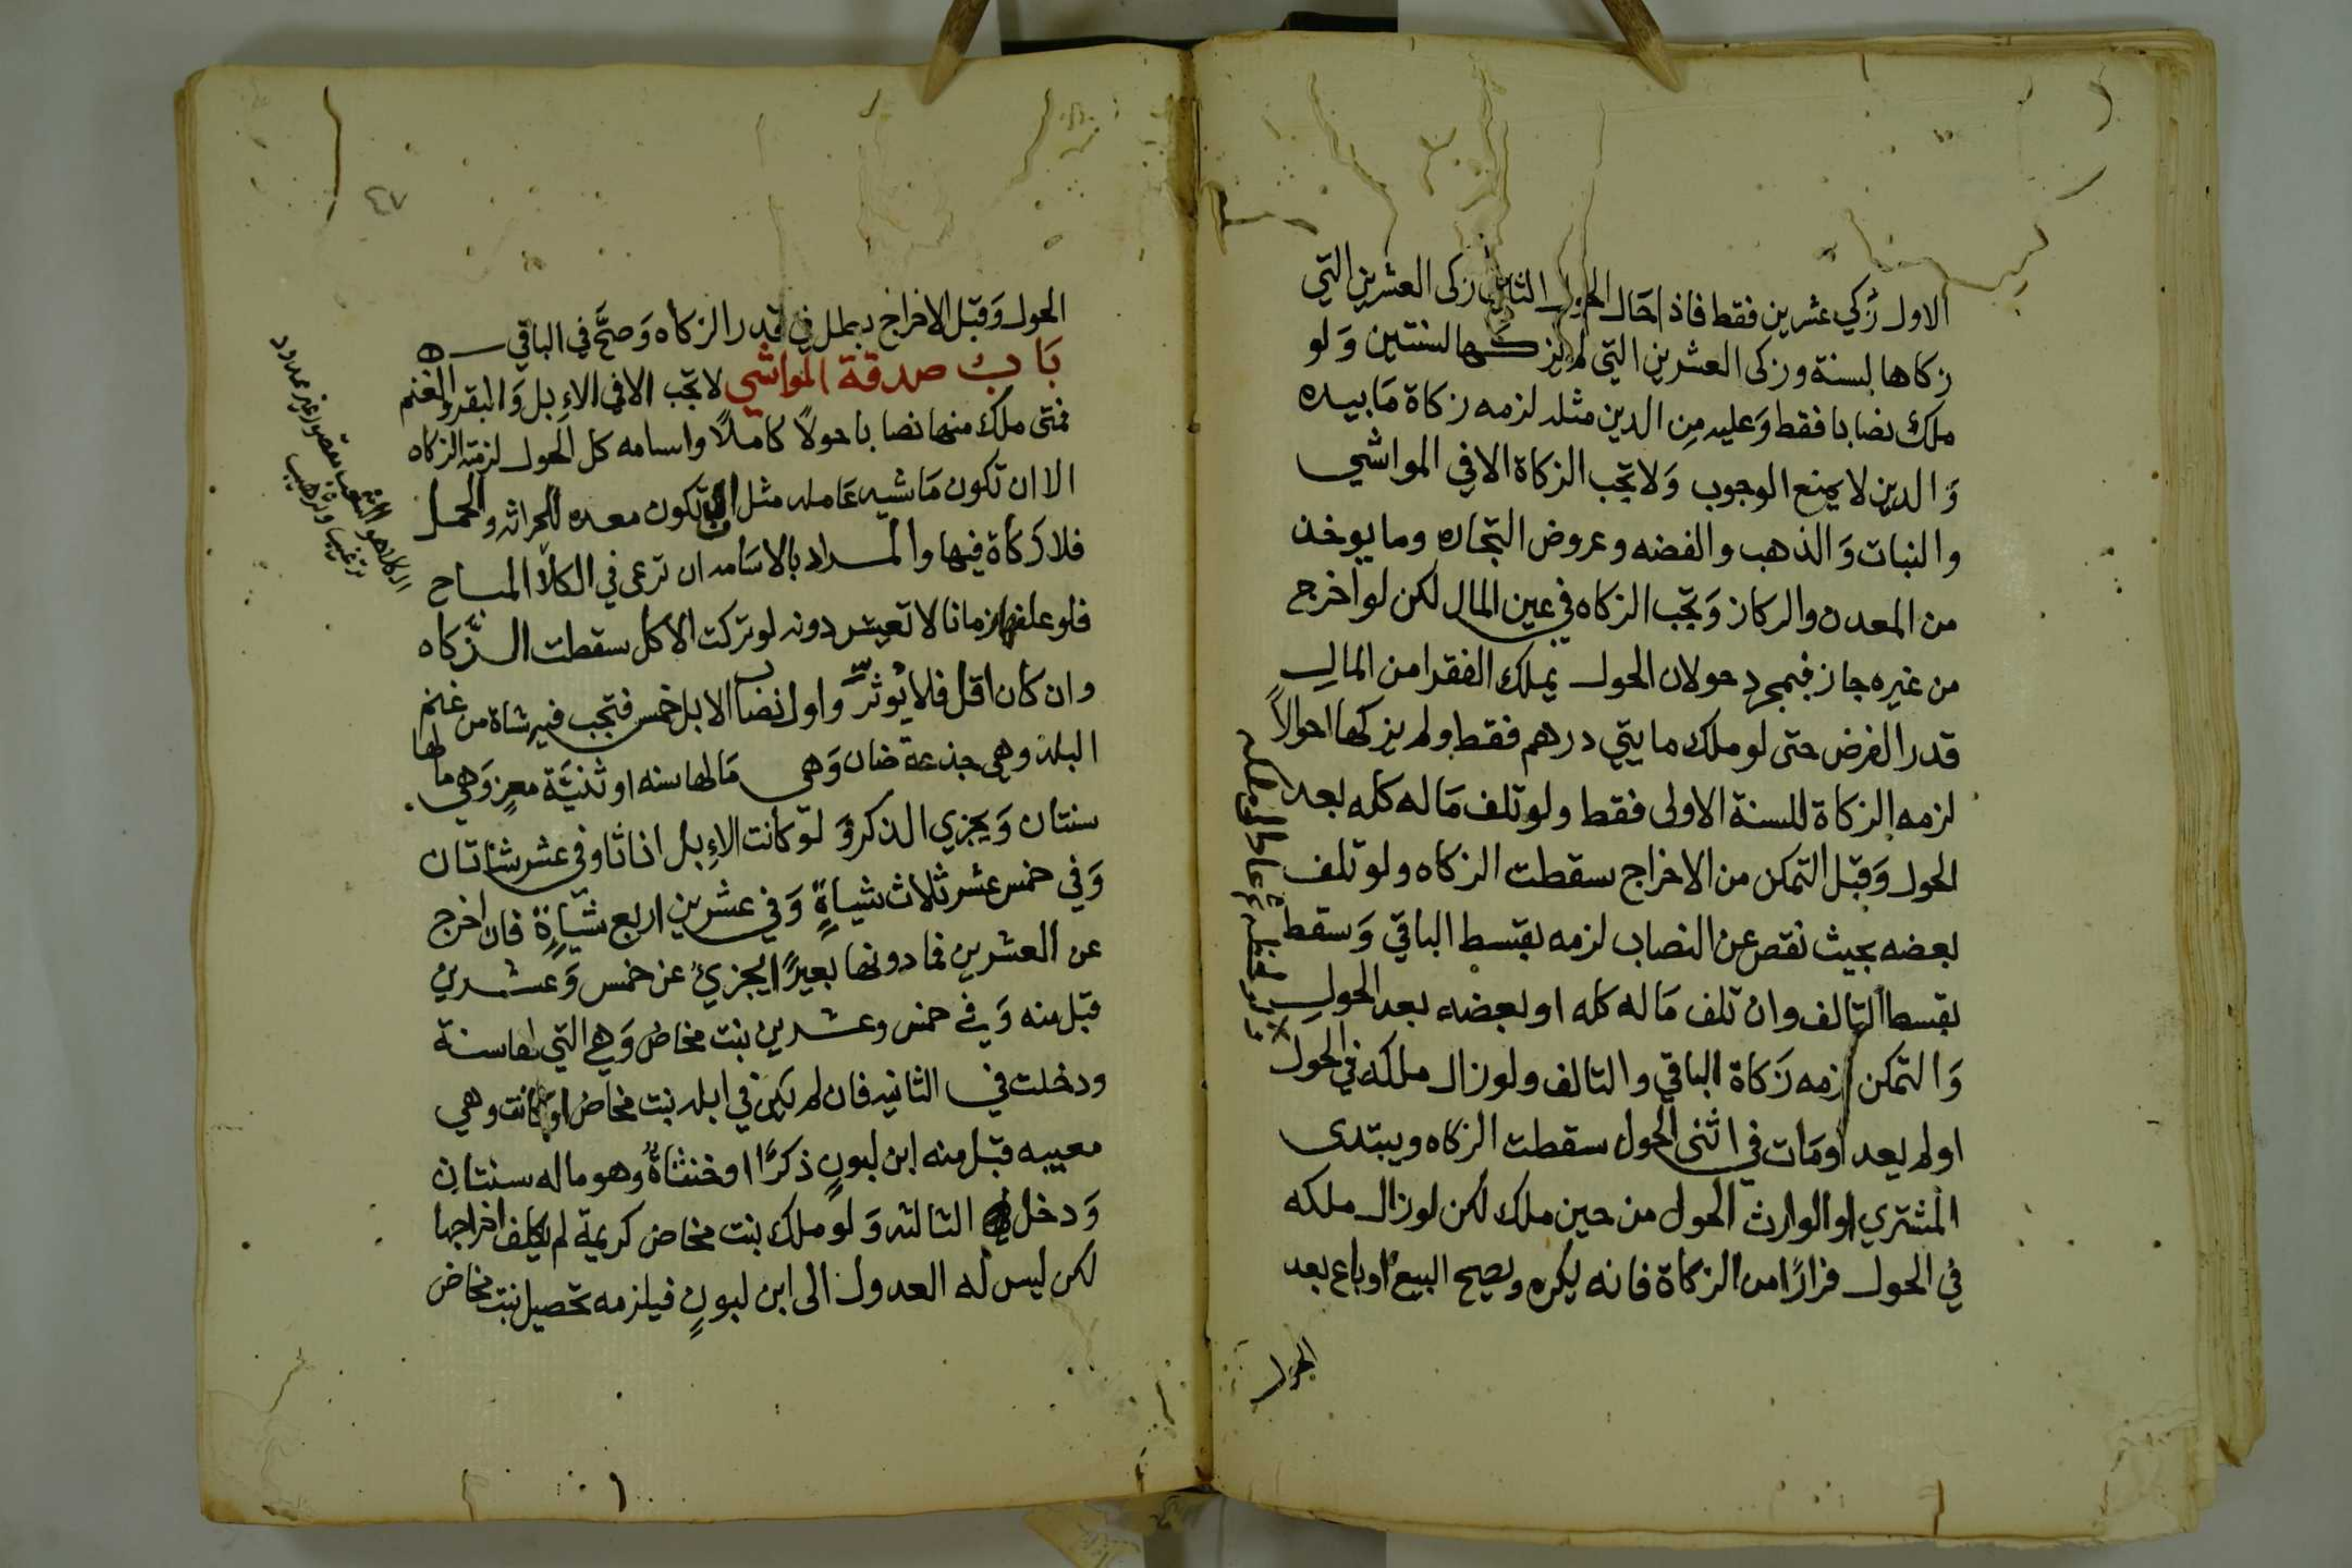 الاول زكي عشرين فقط فاذا حال الحول الثاني زكى العشرين التي
زكاها لسنة وزكى العشرين التي لم يزكها لسنتين وَلو
ملك نصابا فقط وَعليه مِن الدين مثله لزمه زكاة مَا بيده
وَالدين لا يمنع الوجوب وَلا تجب الزكاة الا في المواشي
والنبات وَالذهب والفضه وعروض التجاره وما يوخذ
من المعدن والركاز وَتجب الزكاه في عين المال لكن لو اخرج
من غيره جاز فبمجرد حولان الحول يملك الفقرا من المال
قدر الفرض حتى لو ملك مايتي درهم فقط ولم يزكها احوالاً
لزمه الزكاة للسنة الاولى فقط ولو تلف مَاله كله بعد
الحول وَقبل التمكن من الاخراج سقطت الزكاه ولو تلف
بعضه بحيث نقص عن النصاب لزمه بقسط الباقي وَسقط
بقسط التالف وان تلف مَاله كله او بعضه بعد الحول
وَالتمكن لزمه زَكاة الباقي والتالف ولو زال ملكه في الحول
او لم يعد او مَات في اثنى الحول سقطت الزكاه ويبتدى
المشتري او الوارث الحول من حين ملك لكن لو زال ملكه
في الحول فرارًا من الزكاة فانه يكره ويصح البيع او باع بعد
الحول
٤٧
الحول وَقبل الاخراج بطل في قدر الزكاه وَصحَّ في الباقي
بَاب صدقة المواشي لا تجب الا في الاِبل وَالبقر والغنم
فمتى ملك منها نصابا حولاً كاملاً واسامه كل الحول لزمته الزكاه
الا ان تكون مَاشيه عَامله مثل ان تكون معده للحراثه والحمل
فلا زكاة فيها والمراد بالاسَامه ان ترعى في الكلأ المباح
فلو علفها زمانا لا تعيش دونه لو تركت الاكل سقطت الزَّكاه
وان كان اقل فلا يُوثرّ واول نصاب الابل خمس فتجب فيه شاة من غنم
البلد وهي جذعة ضان وَهي مَا لها سنه او ثنيَّة معزٍ وَهي ما لها
سنتان وَيجزي الذكر وَلو كانت الاِبل اناثا وفي عشر شاتان
وَفي خمس عشر ثلاث شياةٍ وَفي عشرين اربع شيَاةٍ فان اخرج
عن العشرين فما دونها بعيرًا يجزئ عن خمس وَعشرين
قبل منه وَفي خمس وعشرين بنت مخاض وَهي التي لها سنة
ودخلت في الثانيه فان لم يكن في ابله بنت مخاض او كانت وهي
معيبه قبل منه ابن لبونٍ ذكرًا او خنثاةً وهو ما له سنتان
وَدخل في الثالثه وَلو ملك بنت مخاض كريمة لم يكلف اخراجها
لكن ليس له العدول الى ابن لبونٍ فيلزمه تحصيل بنت مخاض